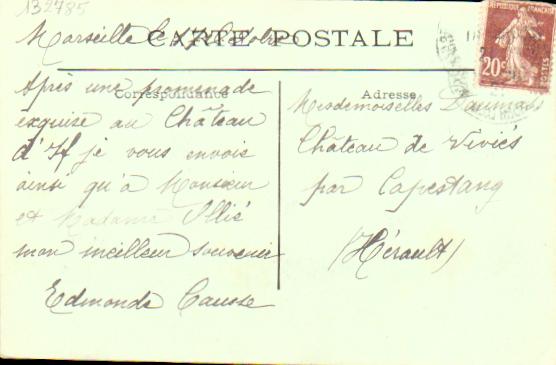 132785
Marseille le 17 Octobre
CARTE POSTALE
Correspondance
Après une promenade
exquise au Château
d'If je vous envois
ainsi qu'à Monsieur
et Madame
mon meilleur souvenir
Edmonde Causse
Adresse
Mesdemoiselles Daumas
Château de Viviés
par Capestang
(Hérault)
REPUBLIQUE FRANÇAISE
20c
POSTES